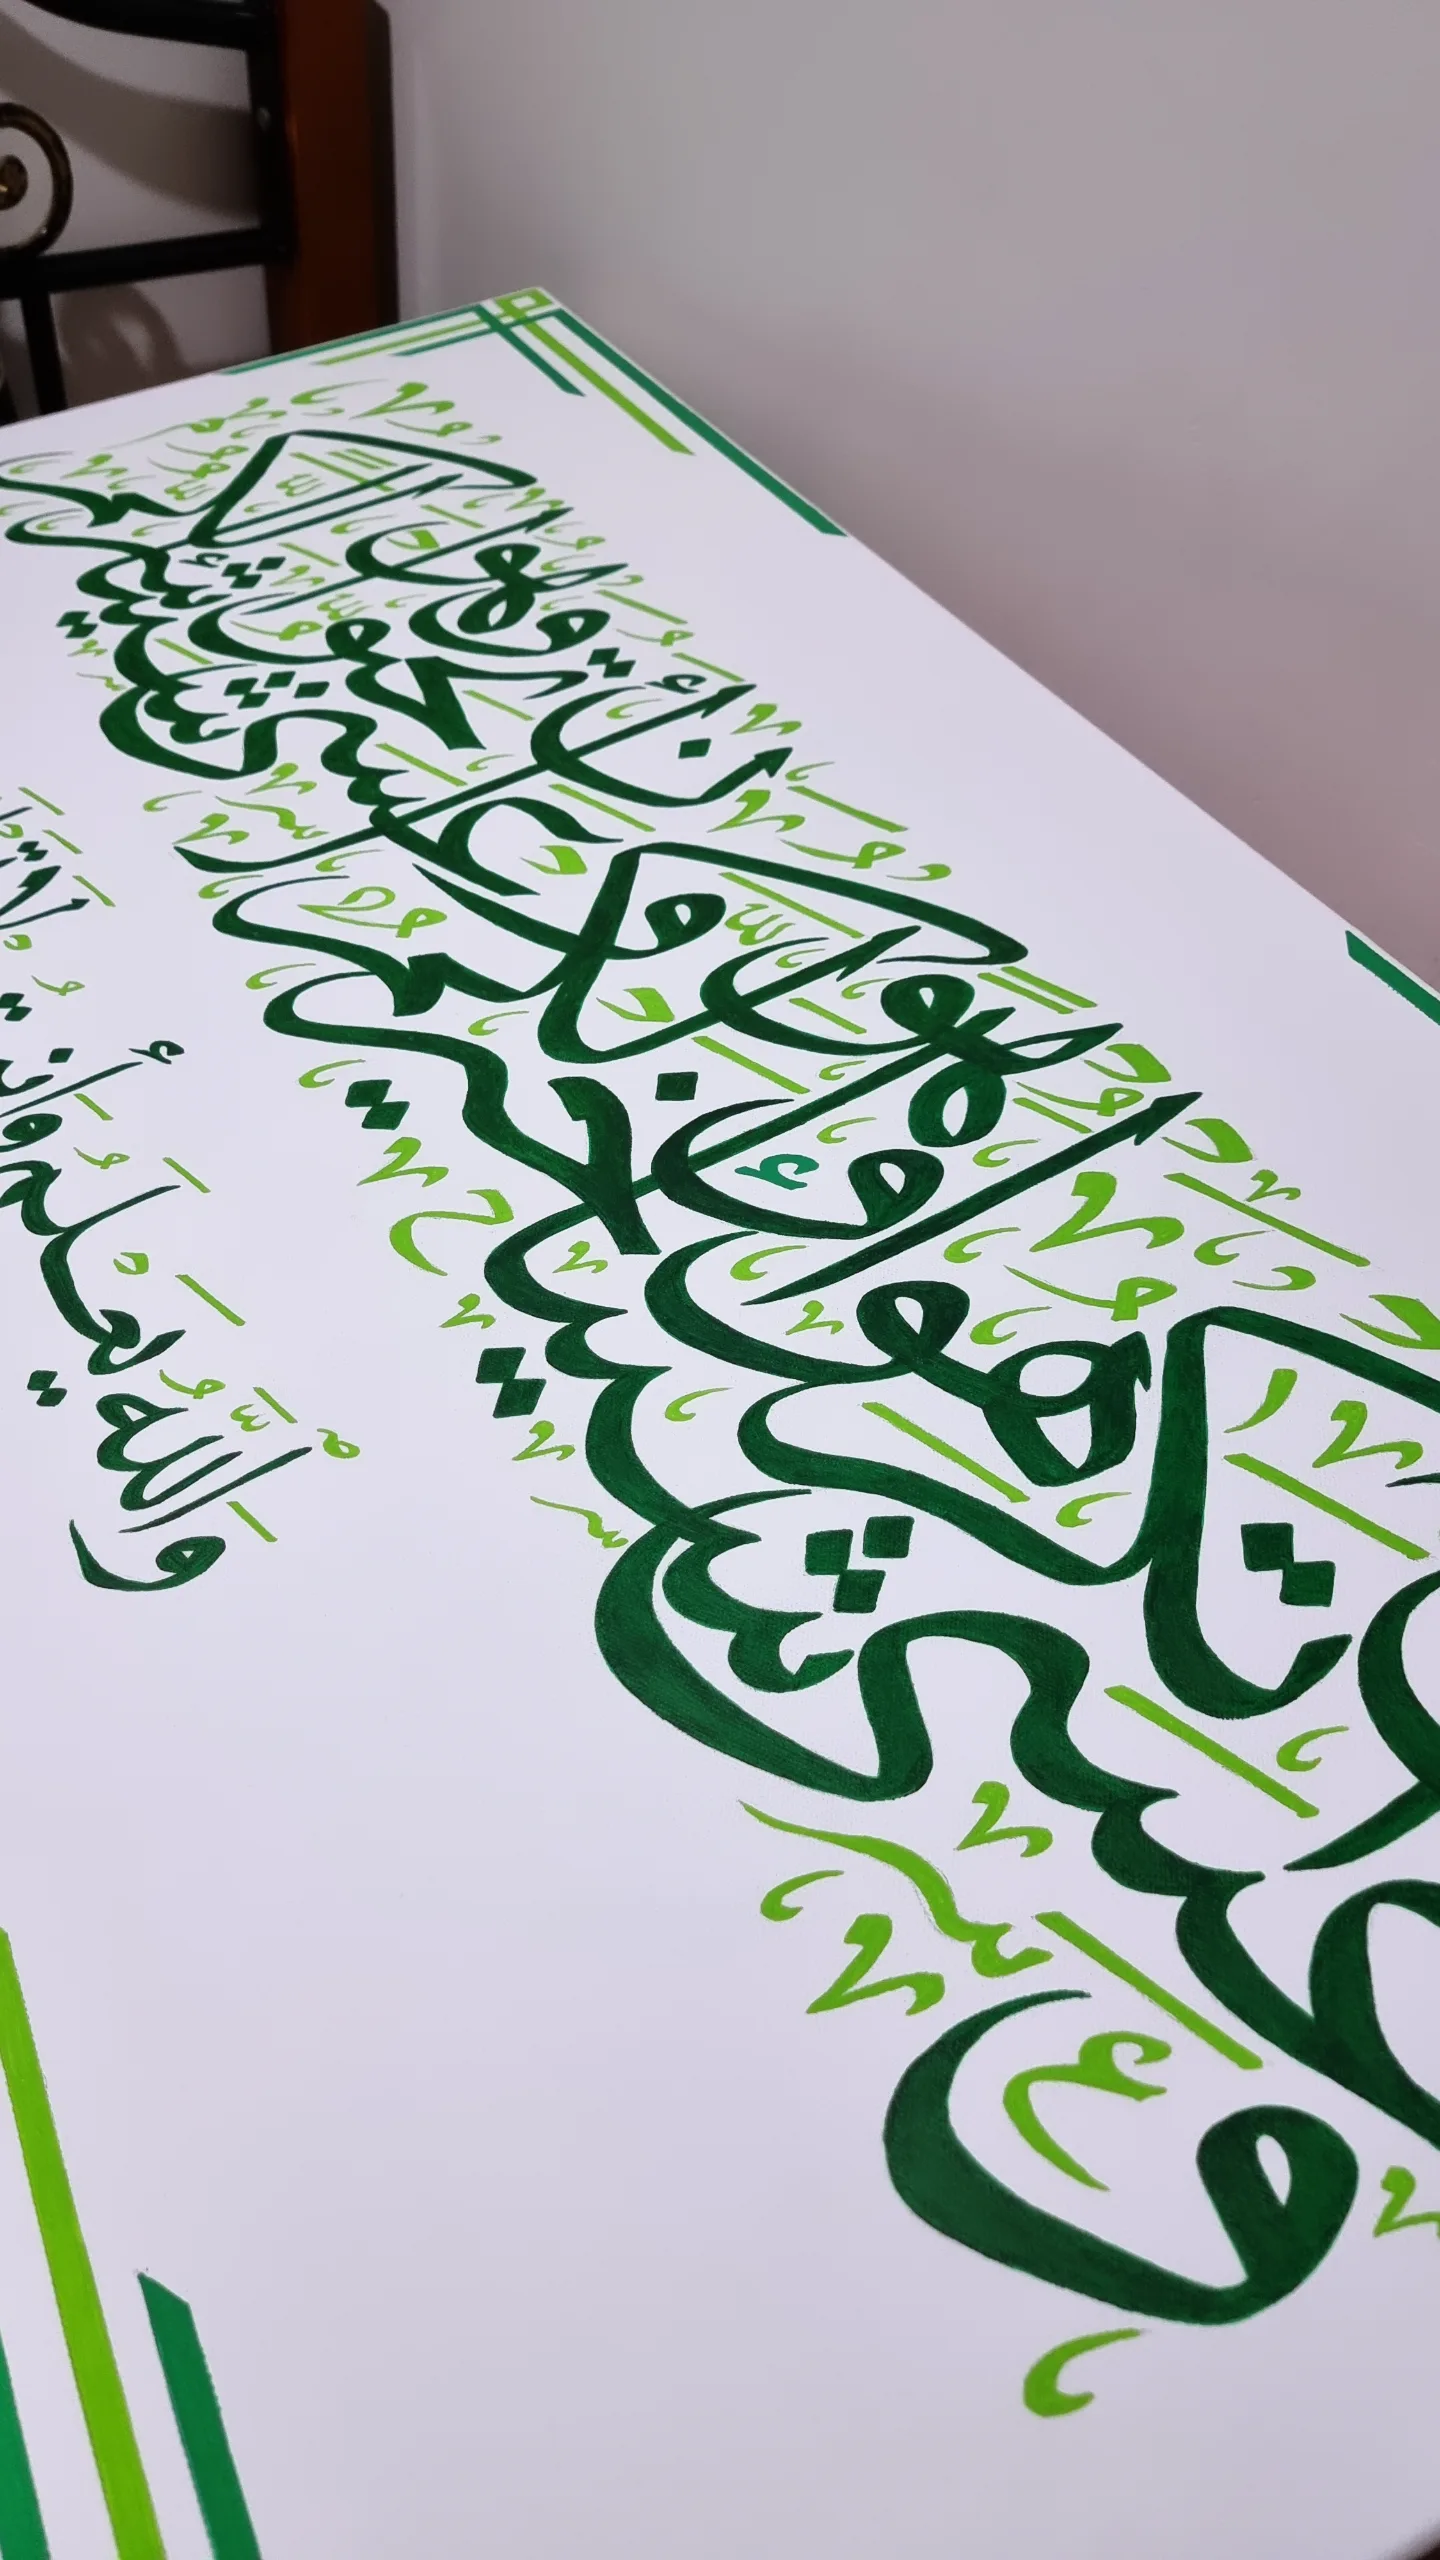 وعسى أن تكرهوا شيئا وهو خير لكم وعسى أن تحبوا شيئا وهو شر لكم
والله يعلم وأنتم لا